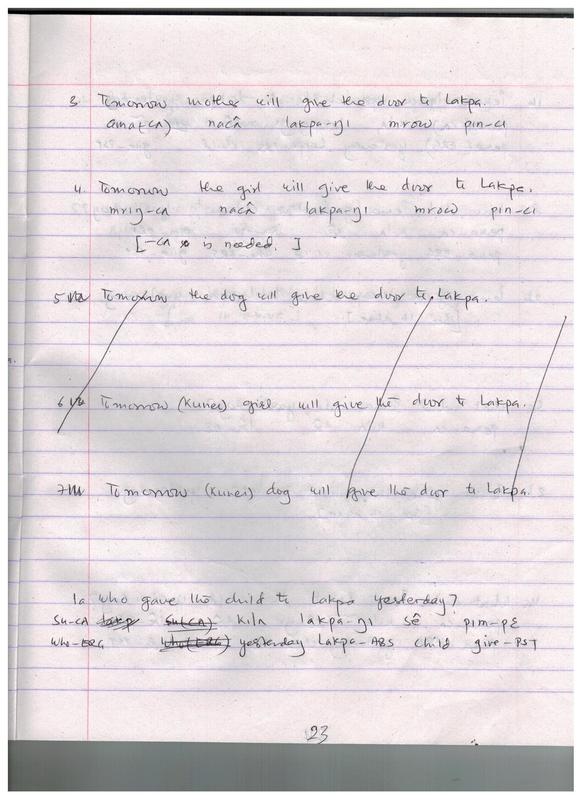 3. Tomorrow mother will give the door to Lakpa.
ama(-CA) nacâ lakpa-ŋi mrow pin-ci
4. Tomorrow the girl will give the door to Lakpa.
mriŋ-CA nacâ lakpa-ŋi mrow pin-ci
[-CA is needed.]
5 Tomorrow the dog will give the door to Lakpa.
6 Tomorrow (Kunei) girl will give the door to Lakpa.
7 Tomorrow (Kunei) dog will give the door to Lakpa.
1a who gave the child to Lakpa yesterday?
Su-CA lakp su(CA) kila lakpa-ŋi sê pim-pɛ
Who-ERG who(ERG) yesterday Lakpa-ABS child give-PST
23